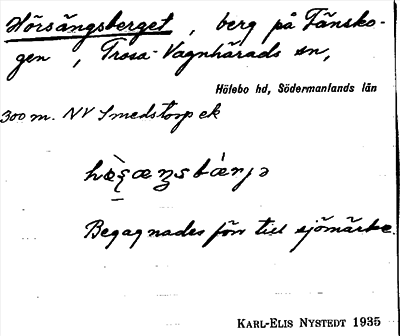 Hörsängsberget, berg på Tånsko-
gen, Trosa-Vagnhärads sn,
Hölebo hd, Södermanlands län
300 m. NV Smedstorp ek
Begagnades förr till sjömärke.
KARL-ELIS NYSTEDT 1935